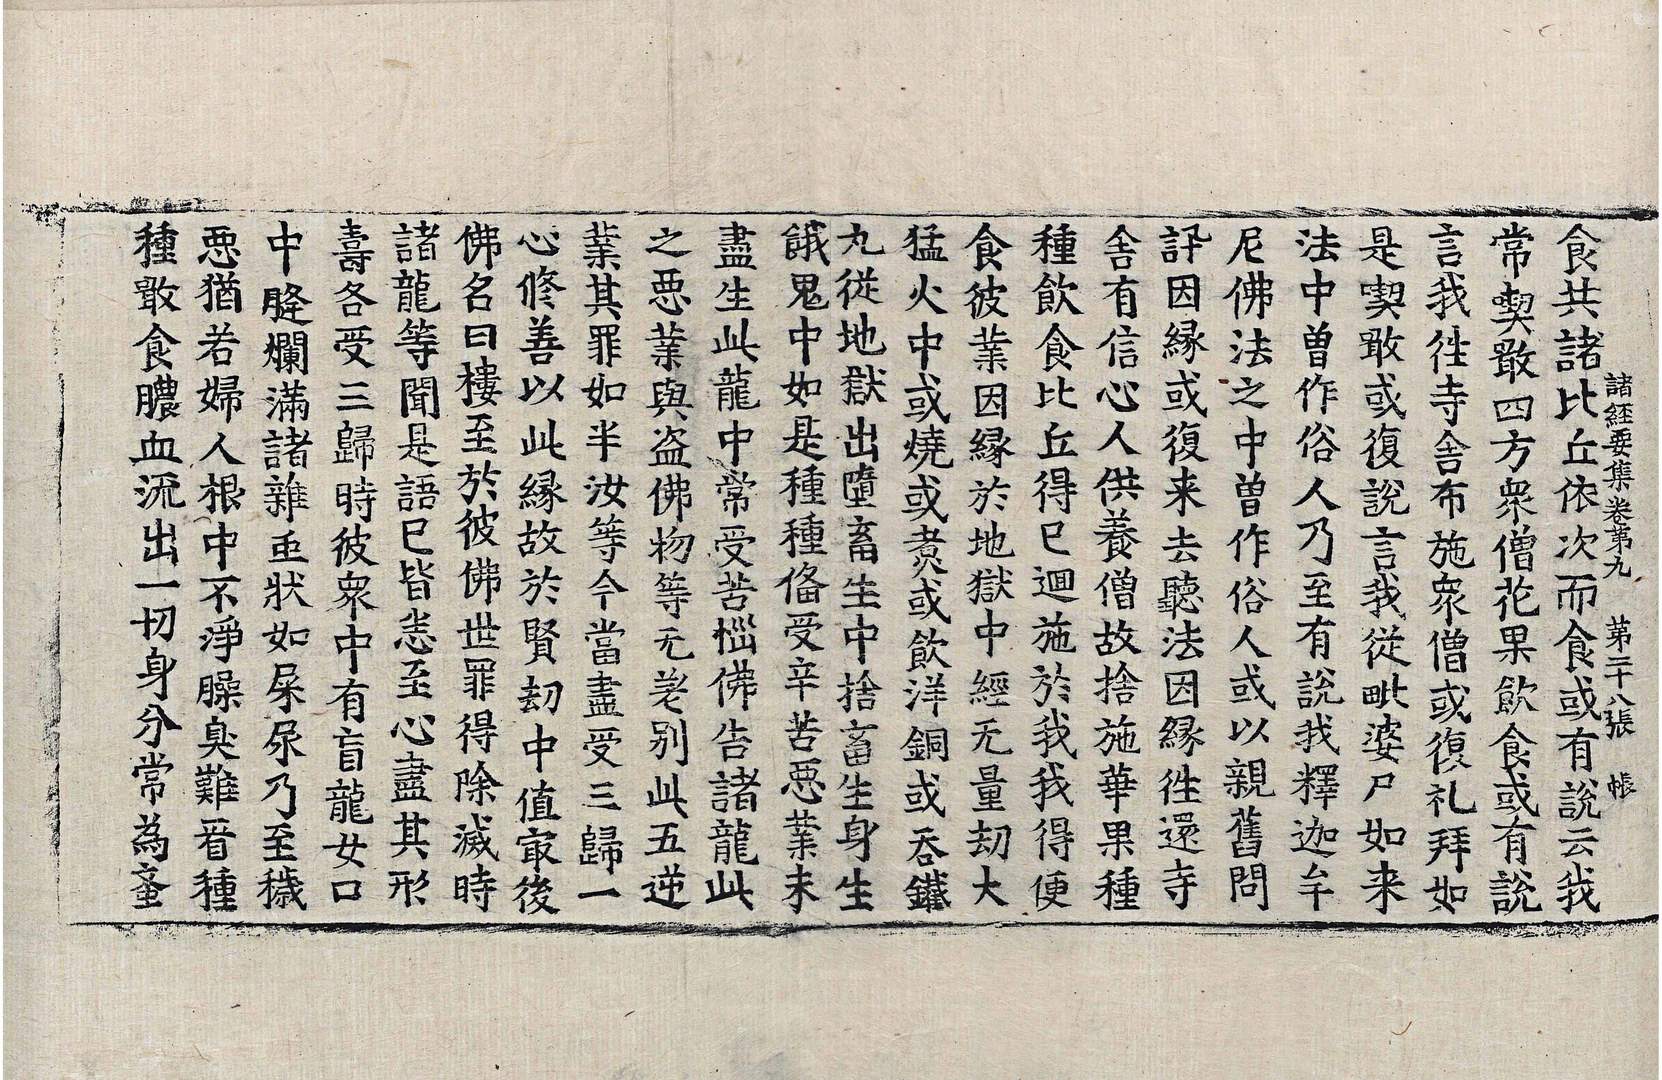 諸經要集卷第九　第二十八張　帳
食共諸比丘依次而食或有說云我
常喫噉四方衆僧花果飲食或有說
言我徃寺舍布施衆僧或復礼拜如
是喫噉或復說言我從毗婆尸如来
法中曽作俗人乃至有說我釋迦牟
尼佛法之中曽作俗人或以親舊問
訊因縁或復来去聽法因縁徃還寺
舍有信心人供養僧故捨施華果種
種飲食比丘得已迴施於我我得便
食彼業因縁於地獄中經无量劫大
猛火中或燒或煑或飲洋銅或吞鐵
丸從地獄出墮畜生中捨畜生身生
餓鬼中如是種種俻受辛苦惡業未
盡生此龍中常受苦惱佛告諸龍此
之惡業與盗佛物等无差別此五逆
業其罪如半汝等今當盡受三歸一
心修善以此縁故於賢劫中值㝡後
佛名曰樓至於彼佛世罪得除滅時
諸龍等聞是語已皆悉至心盡其形
壽各受三歸時彼衆中有盲龍女口
中膖爛滿諸雜虫狀如屎尿乃至穢
惡猶若婦人根中不淨臊臭難看種
種噉食膿血流出一切身分常為蚉